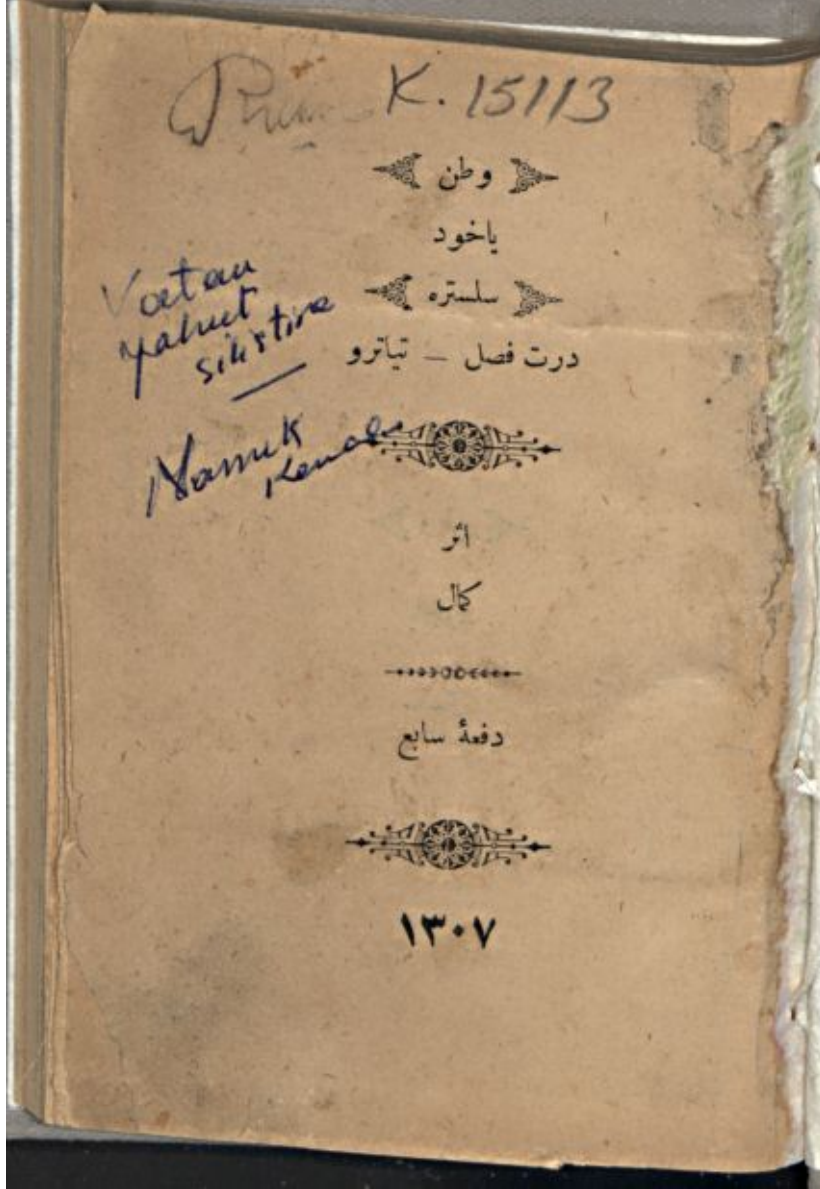 K. 15113
وطن
ياخود
سلستره
درت فصل — تياترو
Vatan
yahut
silistire
Namık
Kemal
اثر
كمال
دفعهٔ سابع
١٣٠٧